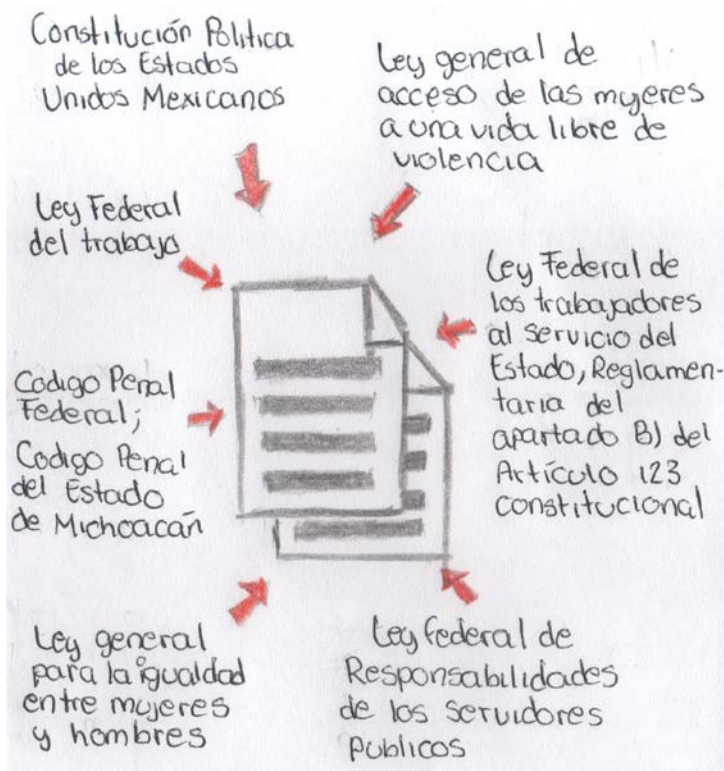 Constitución Politica
de los Estados
Unidos Mexicanos
Ley general de
acceso de las mujeres
a una vida libre de
violencia
Ley Federal
del trabajo
Ley Federal de
los trabajadores
al servicio del
Estado, Reglamen-
taria del
apartado B) del
Artículo 123
constitucional
Codigo Penal
Federal;
Codigo Penal
del Estado
de Michoacán
Ley general
para la igualdad
entre mujeres
y hombres
Ley federal de
Responsabilidades
de los servidores
Publicos